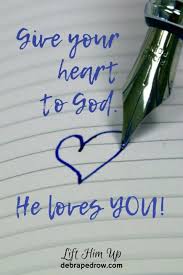 Give your
heart
to God.
He loves YOU!
Lift Him Up
debrapedrow.com